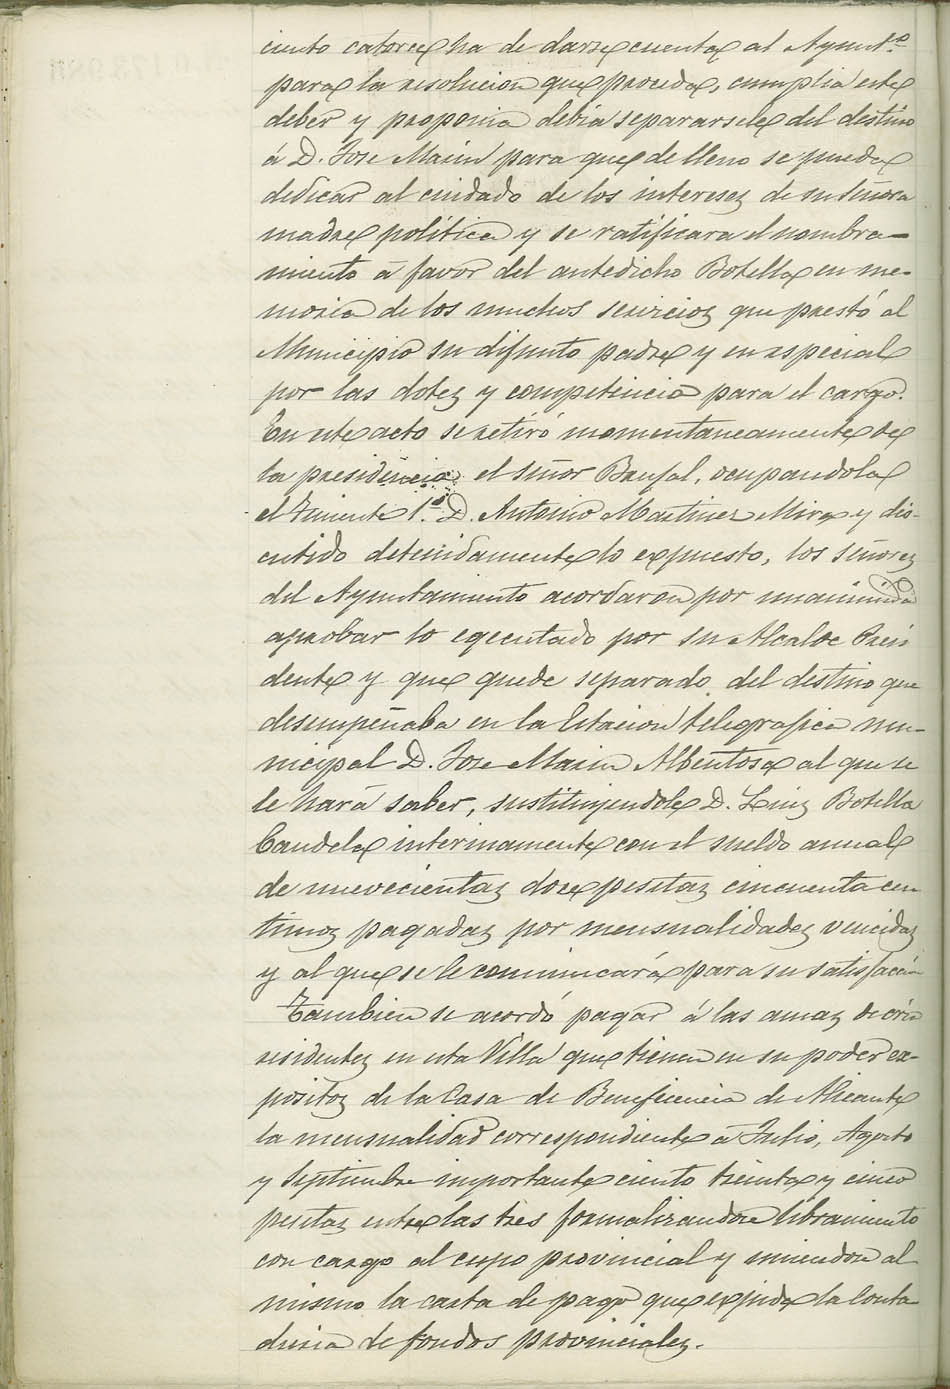 ciento catorce ha de darse cuenta al Ayuntº
para la resolucion que proceda, cumplia este
deber y proponia debia separarsele del destino
á D. Jose Marin para que de lleno se pueda
dedicar al cuidado de los intereses de su Señora
madre politica y se ratificara el nombra-
miento á favor del antedicho Botella en me-
moria de los muchos servicios que prestó al
Municipio su difunto padre y en especial
por las dotes y competencia para el cargo.
En este acto se retiró momentaneamente de
la presidencia el señor Brufal, ocupandola
el Teniente 1.º D. Antonio Martinez Mira y dis-
cutido detenidamente lo expuesto, los señores
del Ayuntamiento acordaron por unanimidad
aprobar lo egecutado por su Alcalde Presi
dente y que quede separado del destino que
desempeñaba en la Estacion telegrafica mu-
nicipal D. Jose Marin Albentosa al que se
le hará saber, sustituyendole D. Luis Botella
Candela interinamente con el sueldo anual
de nuevecientas doce pesetas cincuenta cen
timos pagadas por mensualidades vencidas
y al que se le comunicará para su satisfacción
Tambien se acordó pagar á las amas de cria
residentes en esta Villa que tienen en su poder ex-
positos de la Casa de Beneficencia de Alicante
la mensualidad correspondiente á Julio, Agosto
y Septiembre importante ciento treinta y cinco
pesetas entre las tres formalizandose libramiento
con cargo al cupo provincial y uniendose al
mismo la carta de pago que expide la Conta
duria de fondos provinciales.